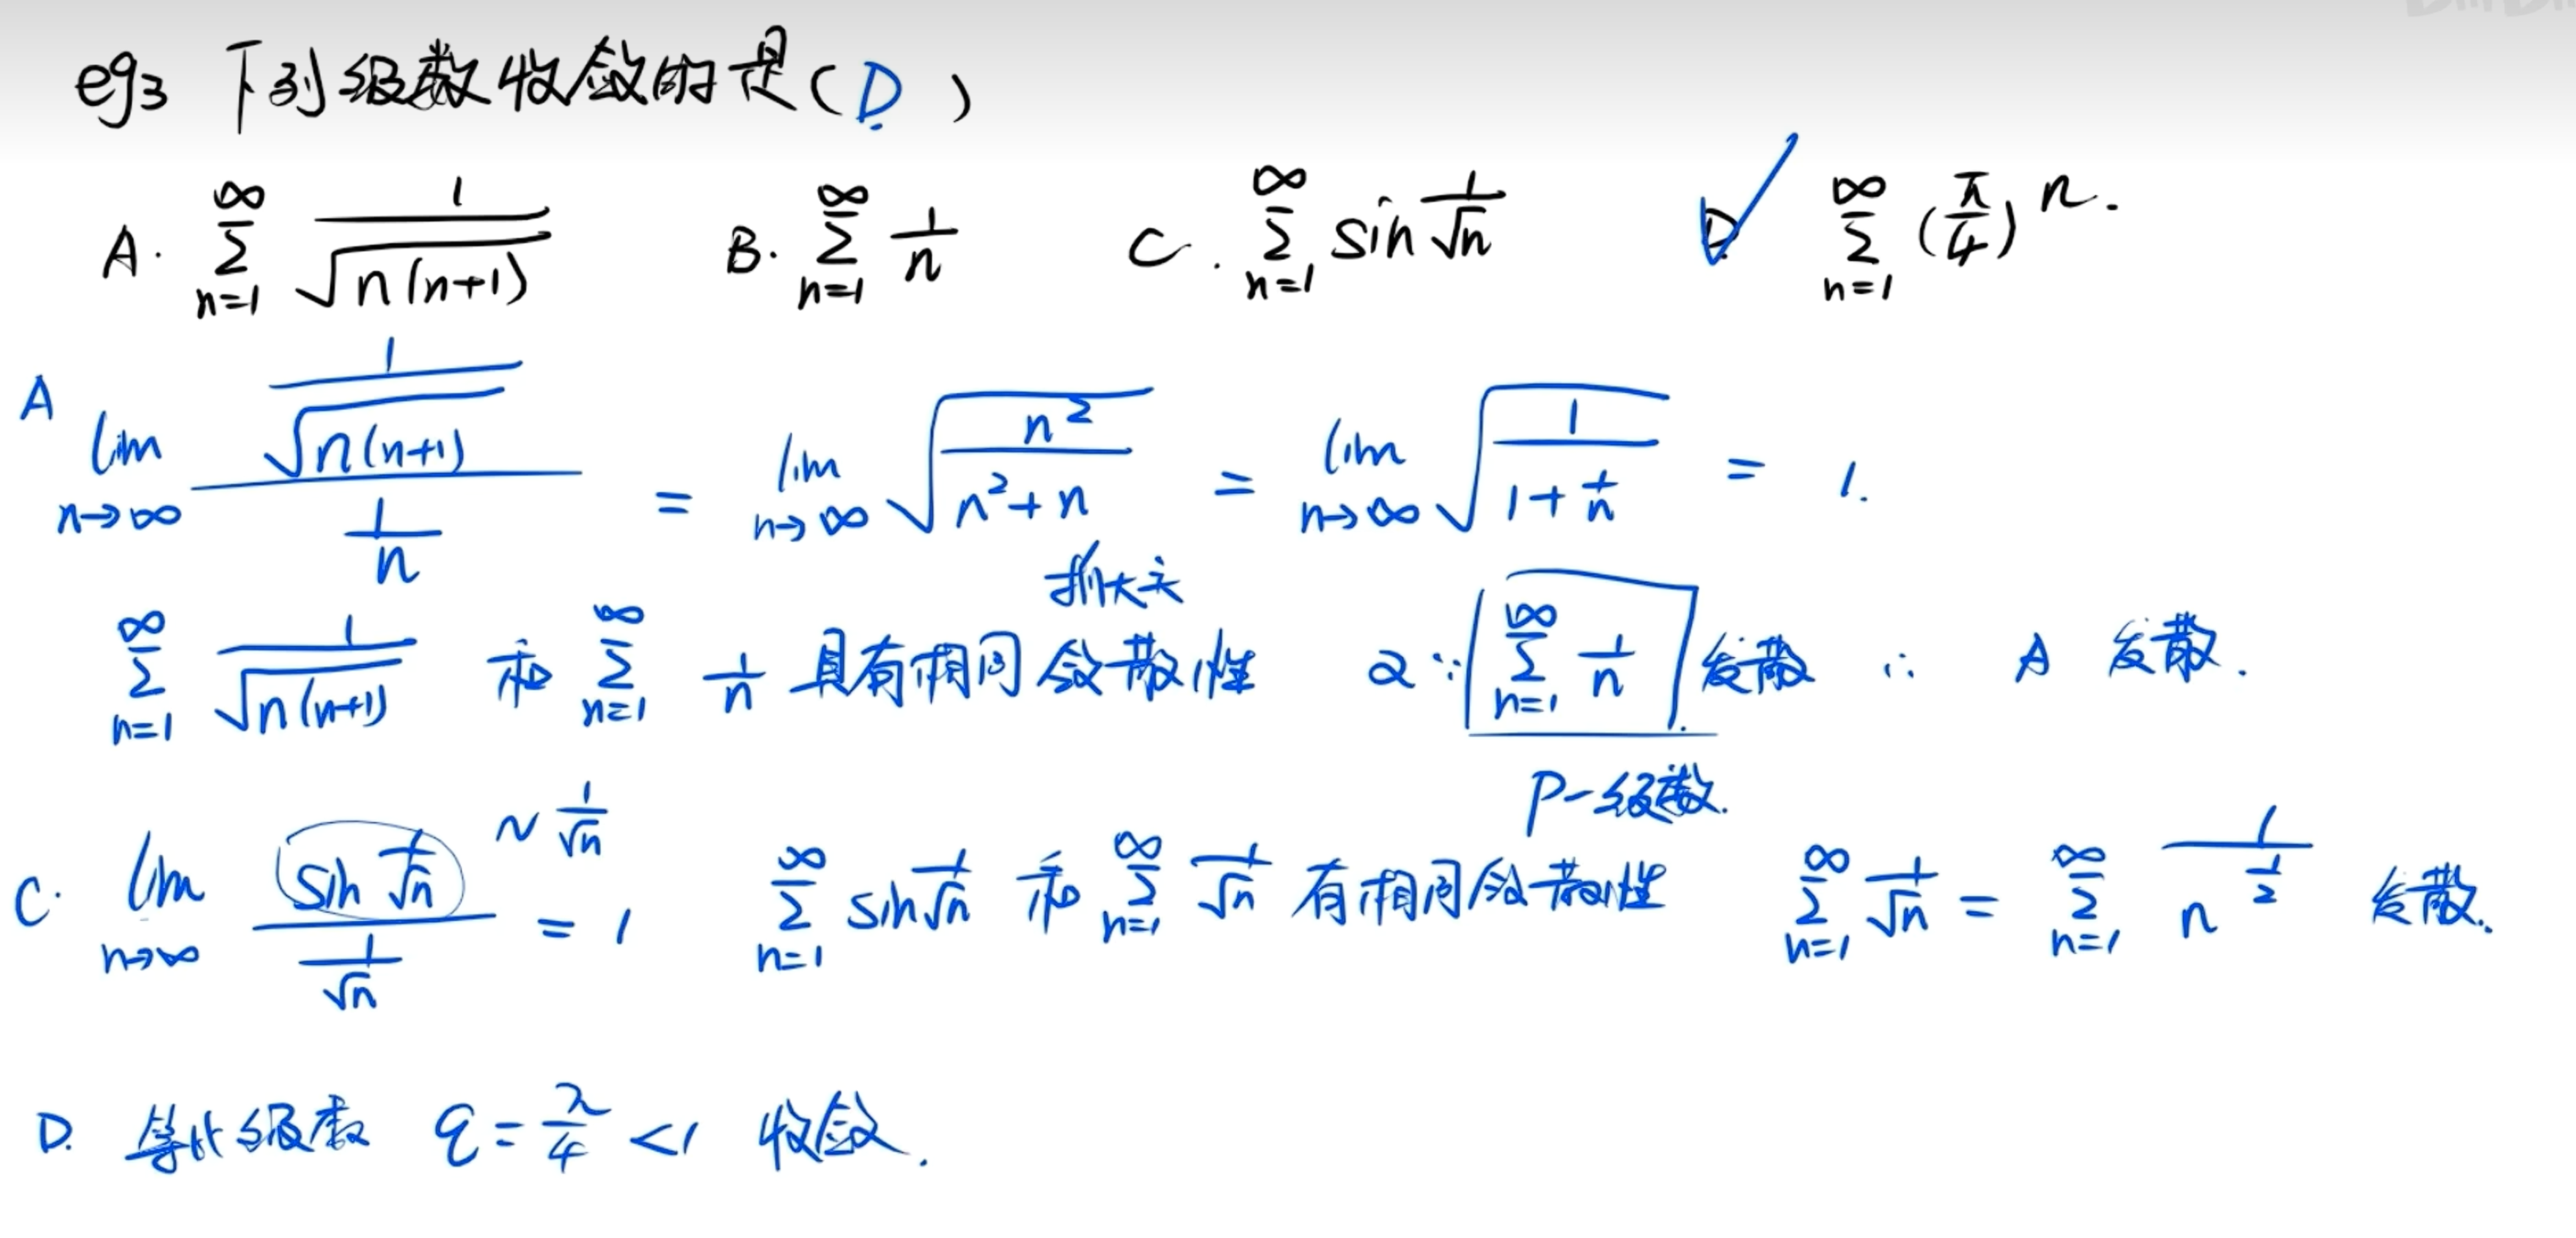 eg3 下列级数收敛的是( D )
A. ∞∑n=1 1/√(n(n+1)) B. ∞∑n=1 1/n C. ∞∑n=1 sin 1/√n D. ∞∑n=1 (π/4)^n.
A lim n→∞ (1/√(n(n+1)))/(1/n) = lim n→∞ √(n²/(n²+n)) = lim n→∞ √(1/(1+1/n)) = 1.
抓大头
∞∑n=1 1/√(n(n+1)) 和 ∞∑n=1 1/n 具有相同敛散性 又∵ ∞∑n=1 1/n 发散 ∴ A 发散.
P-级数.
C. lim n→∞ (sin 1/√n)/(1/√n) = 1 ~ 1/√n ∞∑n=1 sin 1/√n 和 ∞∑n=1 1/√n 有相同敛散性 ∞∑n=1 1/√n = ∞∑n=1 1/n^(1/2) 发散.
D. 等比级数 q = π/4 < 1 收敛.